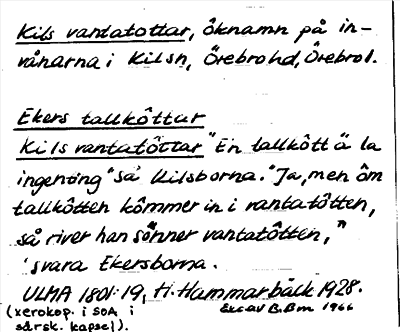 Kils vantatôttar, ôknamn på in-
vånarna i Kilsn, Örebrohd, Örebrol.
Ekers tallkôttar
Kils vantatôttar "En tallkôtt ä la
ingenting" sa Kilsborna. "Ja, men ôm
tallkôtten kômmer in i vantatôtten,
så river han sônner vantatôtten,"
svara Ekersborna.
ULMA 1801:19, H. Hammarbäck 1928.
(xerokop. i SOA i Exc av B.Bm 1966
särsk. kapsel).